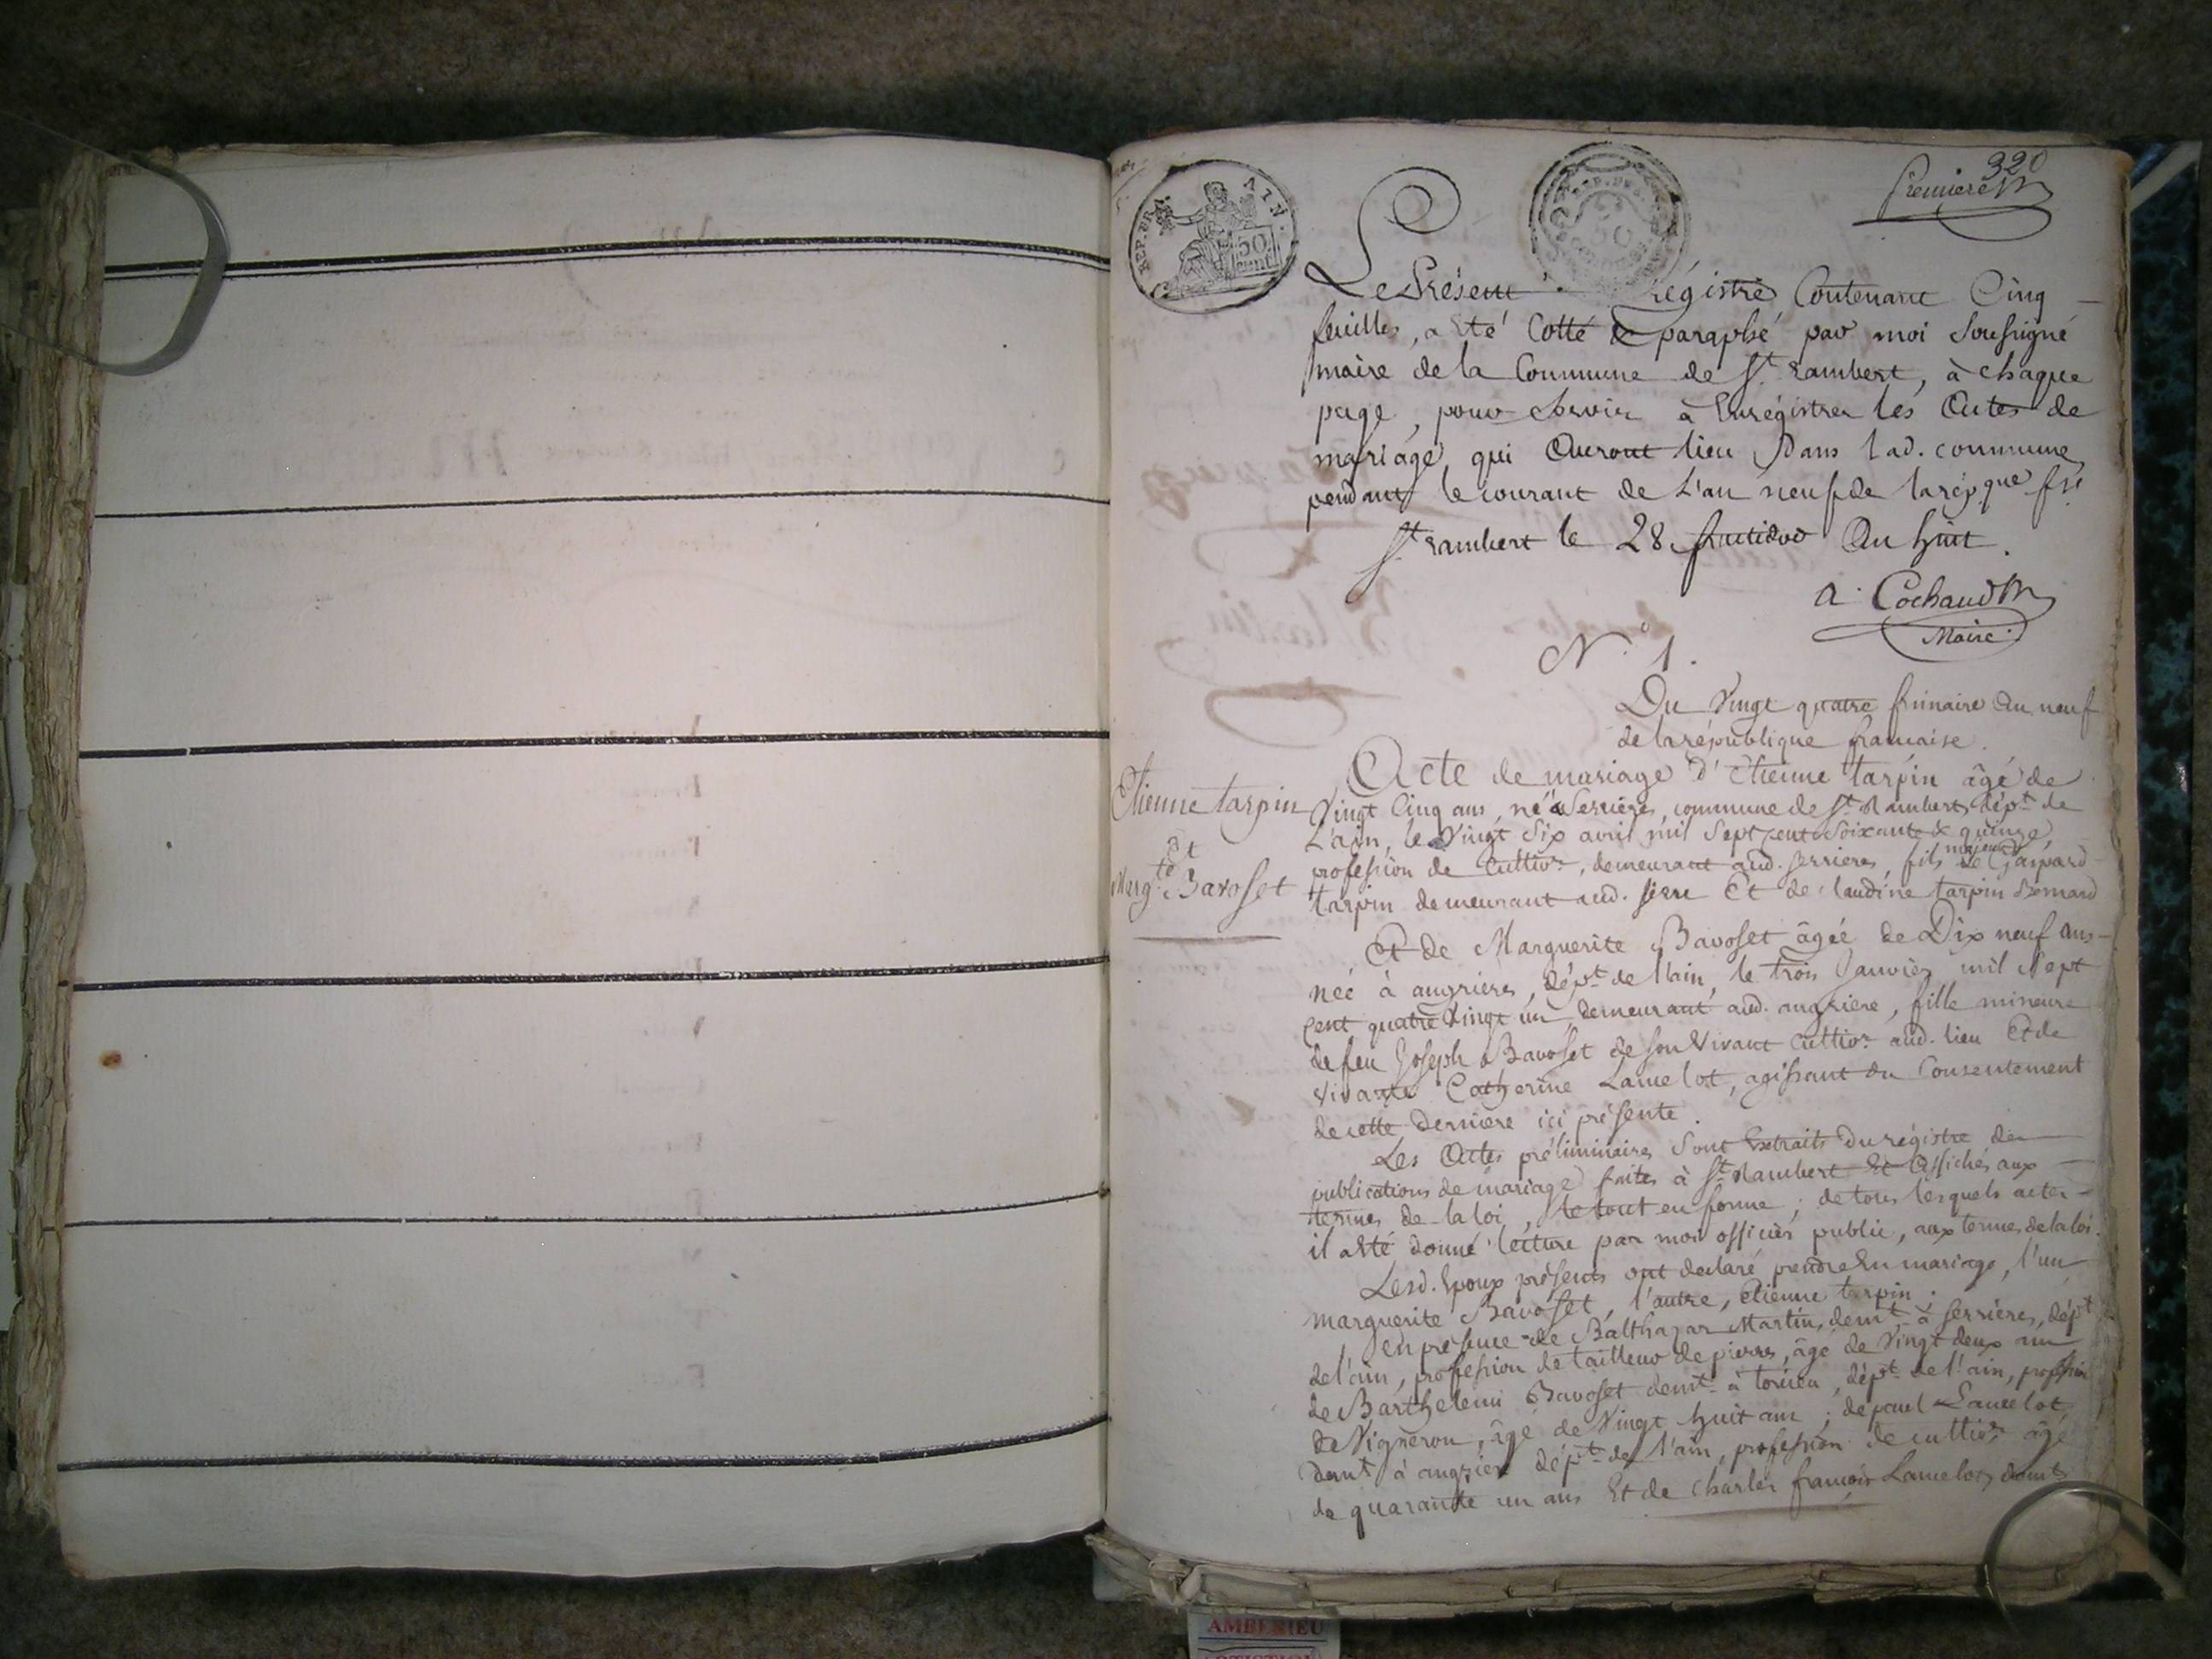 320
Premiere
REP. FRA. AIN.
50 cent
Le Présent régistre Contenant Cinq
feuilles, a Eté Cotté & paraphé par moi Soussigné
maire de la Commune de St. Rambert, à chaque
page, pour Servir à Enrégistrer les Actes de
mariage, qui Auront lieu Dans lad. commune,
pendant le courant de L'an neuf de la rép.que fse
St. Rambert le 28 fructidor An huit.
A. Cochaud
Maire
N.° 1.
Du Vingt quatre frimaire An neuf
de la république francaise.
Etienne tarpin
Et
Margte. Bavoset
Acte de mariage d'Etienne tarpin âgé de
Vingt Cinq ans, né à Serrieres, commune de St. Rambert, dépt. de
L'ain, le Vingt Six avril mil Sept Cent Soixante & quinze,
profession de Cultivr., demeurant aud. Serrieres, fils majeur de Gaspard
tarpin demeurant aud. Serre Et de Claudine tarpin Bernard
Et de Marguerite Bavoset âgée de Dix neuf ans
née à angrieres, dépt. de l'ain, le trois Janvier mil Sept
Cent quatre Vingt un, demeurant aud. angriere, fille mineure
de feu Joseph Bavoset de son Vivant Cultivr. aud. lieu Et de
Vivante Catherine Lancelot, agissant du Consentement
de cette Derniere ici présente.
Les Actes préliminaires Sont Extraits du régistre des
publications de mariage faites à St. Rambert Et Affichés aux
termes de la loi, le tout en forme; de tous lesquels actes
il a Eté donné lecture par moi officier public, aux termes de la loi.
Lesd. Epoux présents ont declaré prendre En mariage, l'un
marguerite Bavoset, l'autre, Etienne tarpin.
En présence de Balthazar Martin, demt. à Serrieres, dépt
de l'ain, profession de tailleur de pierres, âgé de Vingt deux ans
de Barthelemi Bavoset demt. à torcieu, dépt. de l'ain, profession
de Vigneron, âgé de Vingt huit ans; de paul Lancelot
demt à angrier dépt. de l'ain, profession de cultivr. âgé
de quarante un ans Et de Charles françois Lancelot, demt
AMBERIEU